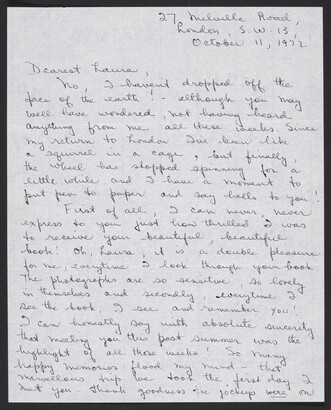 27 Melville Road,
London, S.W. 13,
October 11, 1972
Dearest Laura,
No, I haven't dropped off the
face of the earth! - although you may
well have wondered, not having heard
anything from me all these weeks. Since
my return to London I've been like
a squirrel in a cage, but finally,
the wheel has stopped spinning for a
little while and I have a moment to
put pen to paper and say hello to you!
First of all, I can never, never
express to you just how thrilled I was
to receive your beautiful, beautiful
book! Oh, Laura, it is a double pleasure
for me, everytime I look through your book
the photographs are so sensitive, so lovely
in themselves and secondly, everytime I
see the book, I see and remember you!
I can honestly say with absolute sincerity
that meeting you this past summer was the
highlight of all those weeks! So many
happy memories flood my mind - that
marvellous trip we took the first day I
met you. Thank goodness the were on